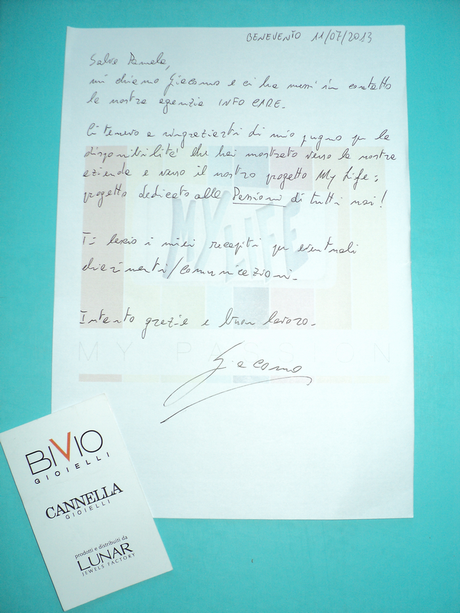 BENEVENTO 11/07/2013
Salve Pamela,
mi chiamo Giacomo e ci ha messi in contatto
la nostra agenzia INFO CARE.
Ci tenevo a ringraziarti di mio pugno per la
disponibilità che hai mostrato verso la nostra
azienda e verso il nostro progetto My Life:
progetto dedicato alle Passioni di tutti noi!
Ti lascio i miei recapiti per eventuali
chiarimenti/comunicazioni.
Intanto grazie e buon lavoro.
Giacomo
MY LIFE
MY PASSION
BIVIO
GIOIELLI
CANNELLA
GIOIELLI
prodotti e distribuiti da
LUNAR
JEWELS FACTORY